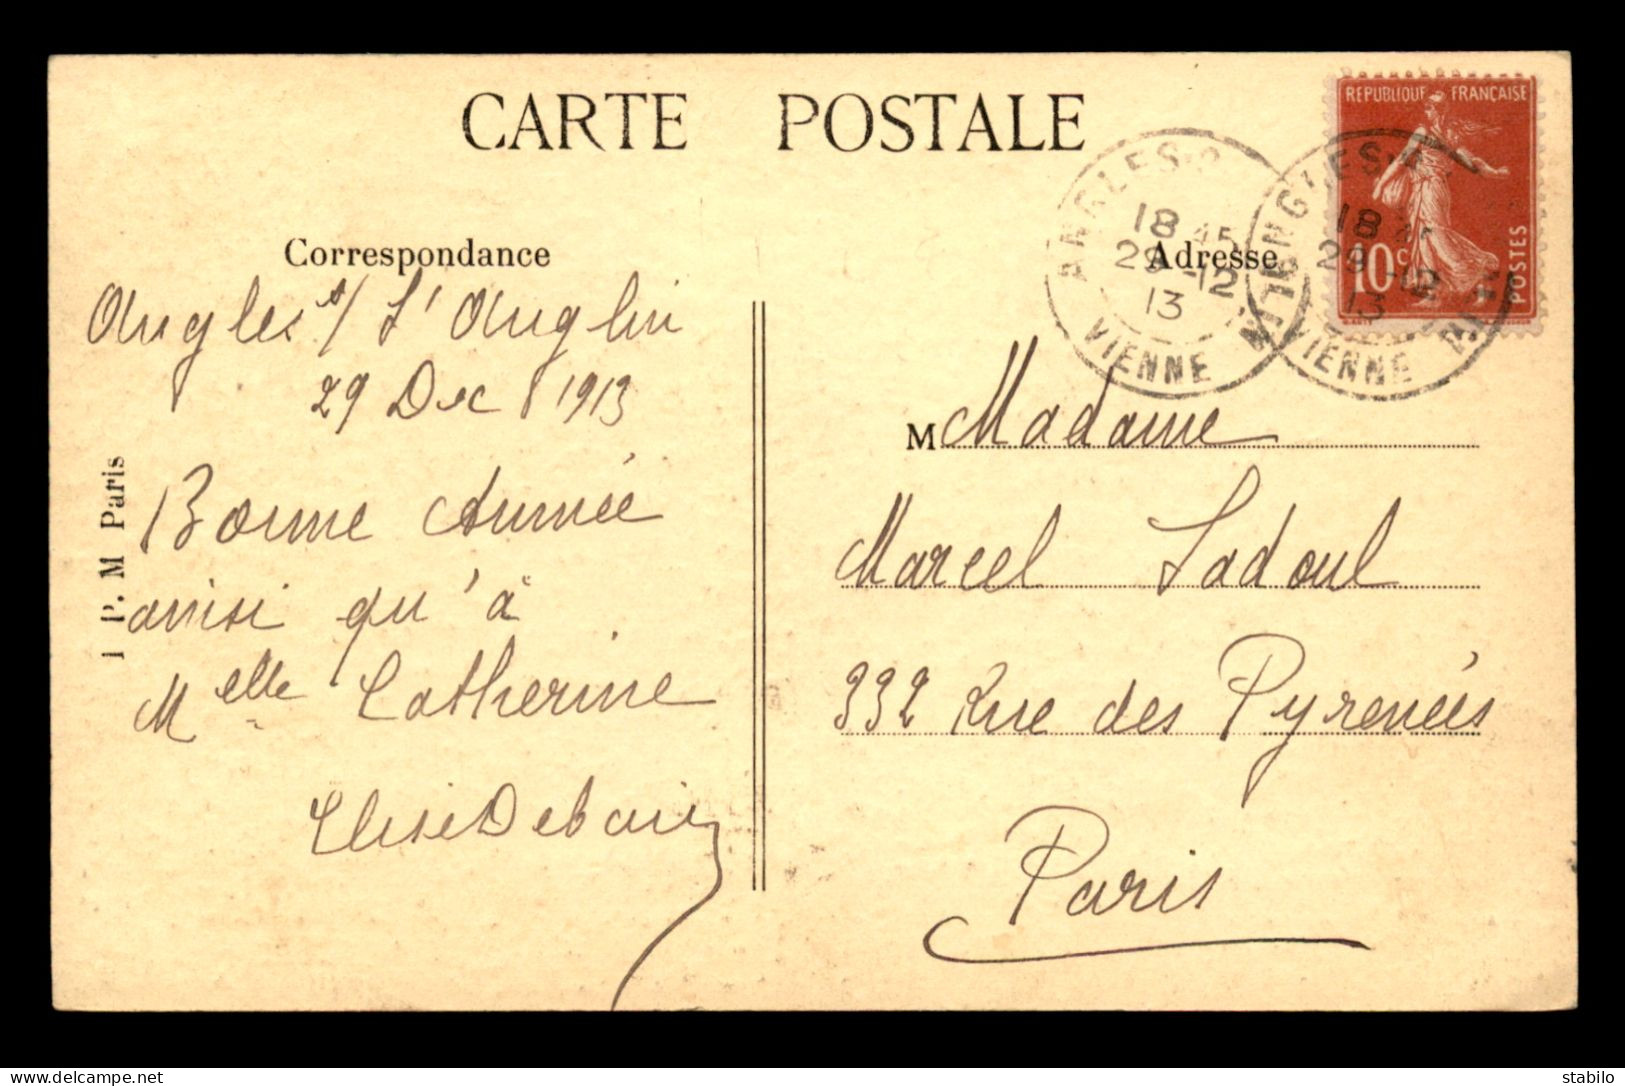 CARTE POSTALE
REPUBLIQUE FRANÇAISE
10c
POSTES
18 45
29 -12
13
VIENNE
18 45
29 -12
13
VIENNE
Correspondance
Adresse
Angles s/ L'Anglin
29 Dec 1913
Bonne Année
ainsi qu'à
Melle Catherine
Elise Debain
1 P. M Paris
M Madame
Marcel Sadoul
332 Rue des Pyrenées
Paris
delcampe.net
stabilo